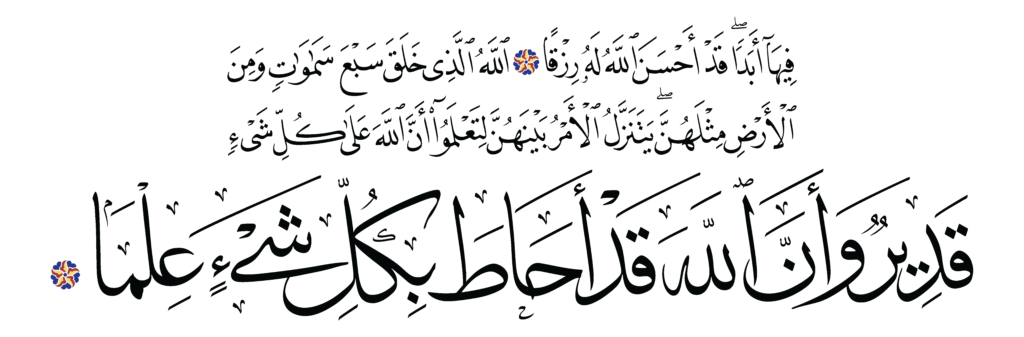 فِيهَآ أَبَدًاۖ قَدْ أَحْسَنَ ٱللَّهُ لَهُۥ رِزْقًا ۞ ٱللَّهُ ٱلَّذِى خَلَقَ سَبْعَ سَمَٰوَٰتٍ وَمِنَ
ٱلْأَرْضِ مِثْلَهُنَّۖ يَتَنَزَّلُ ٱلْأَمْرُ بَيْنَهُنَّ لِتَعْلَمُوٓا۟ أَنَّ ٱللَّهَ عَلَىٰ كُلِّ شَىْءٍ
قَدِيرٌ وَأَنَّ ٱللَّهَ قَدْ أَحَاطَ بِكُلِّ شَىْءٍ عِلْمًۢا ۞